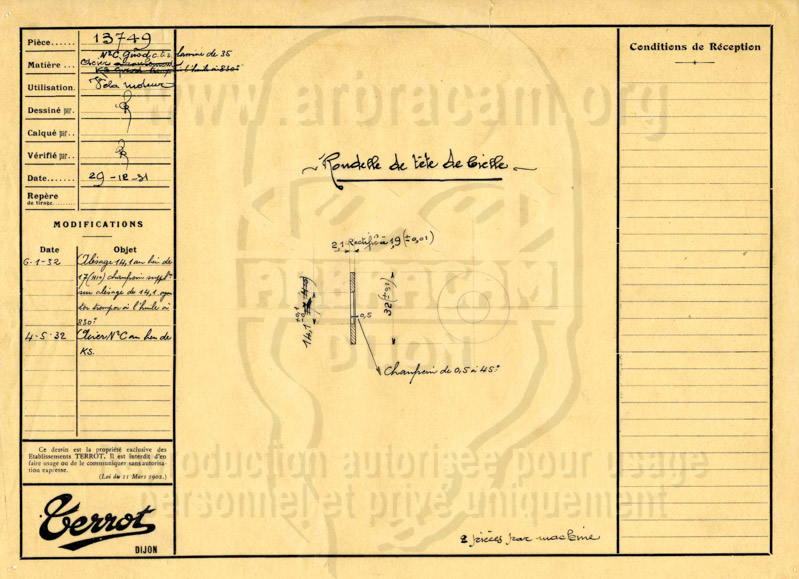 Pièce...... 13749
Nº C
de 35
Matière.. Acier
l'huile à 830º
Utilisation. moteur
Dessiné par.
Calqué par..
Vérifié par..
Date....... 29-12-31
Repère
de tirage........
MODIFICATIONS
Date Objet
6-1-32 Alésage 14,1 au lieu de
17 (H12) chanfrein suppl.
sur alésage de 14,1
tremper à l'huile à
830º
4-5-32 Acier Nº C au lieu de
KS.
Ce dessin est la propriété exclusive des
Etablissements TERROT. Il est interdit d'en
faire usage ou de le communiquer sans autorisa-
tion expresse.
(Loi du 11 Mars 1902.)
Terrot
DIJON
www.arbracam.org
Rondelle de tête de bielle
2,1 Rectifié à 1,9 (±0,01)
14,1 +0,1
0,5
32
Chanfrein de 0,5 à 45º
ARBRACAM
DIJON
Reproduction autorisée pour usage
personnel et privé uniquement
2 pièces par machine
Conditions de Réception